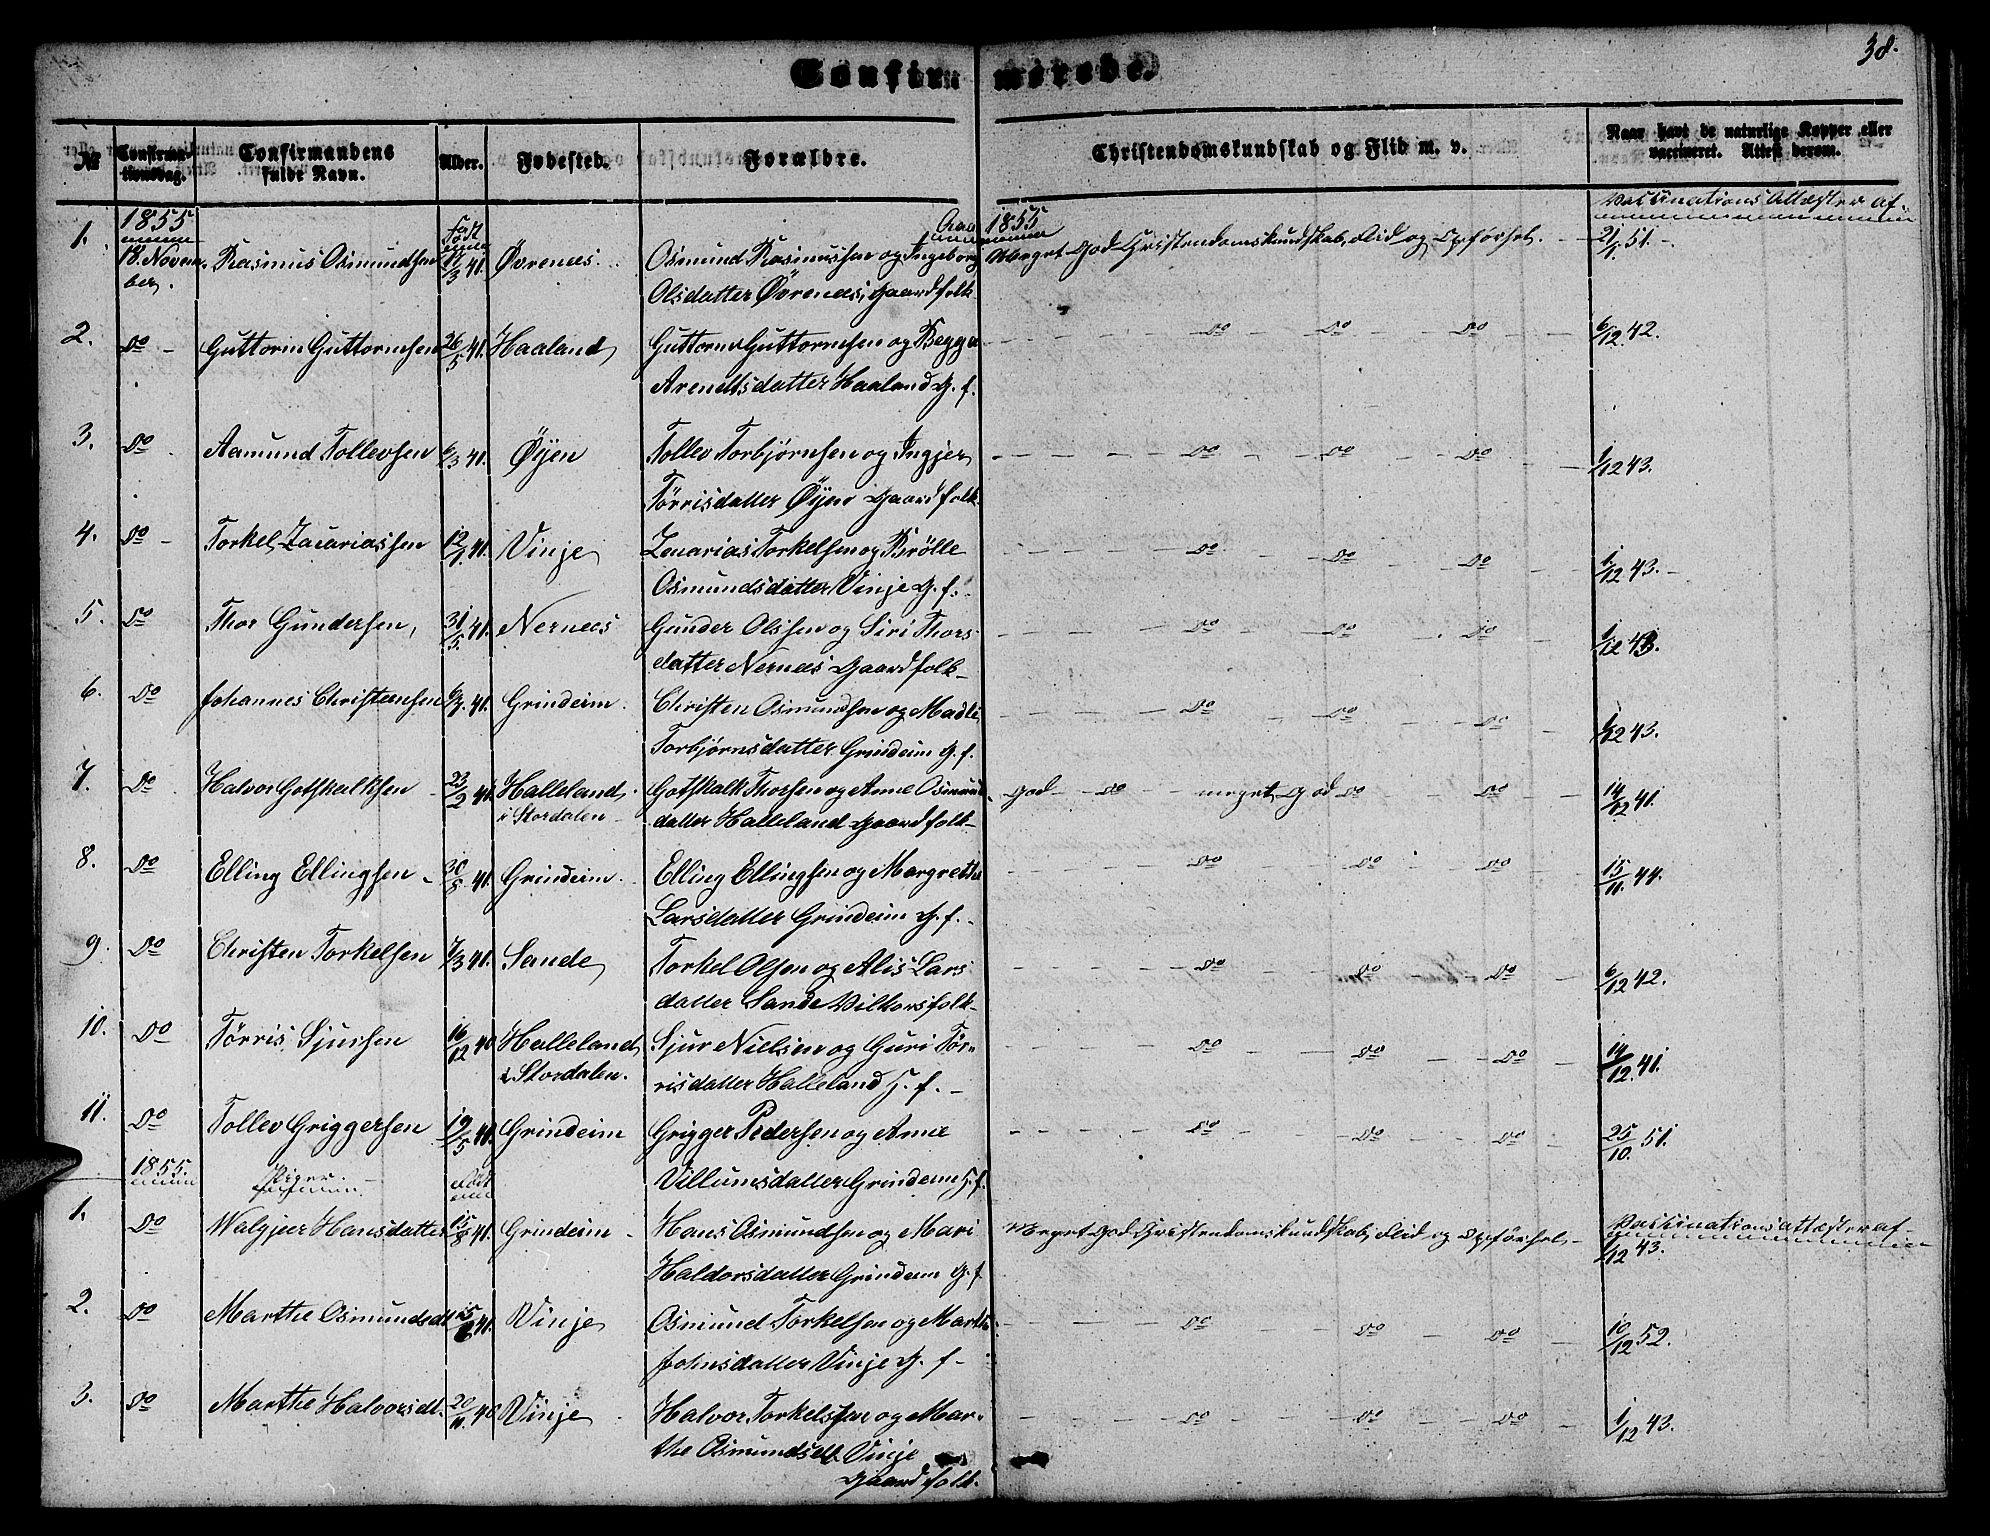 38.
Confirmerede.
№ Confirmationsdag. Confirmandens fulde Navn. Alder. Fødested. Forældre. Christendomskundskab og Flid m. v. Naar havt de naturlige Kopper eller vaccineret. Attest derom.
1855 Født Aar 1855 Vaccinations Attester af
1. 18. Novem- Rasmus Osmundsen 41. Øvrenæs. Osmund Rasmussen og Ingeborg Meget God Christendomskundskab, Flid og Opførsel. 51.
ber. Olsdatter Øvrenæs, Gaardfolk
2. Do Guttorm Guttormsen 26/5 41. Haaland Guttorm Guttormsen og Begga Do Do Do 6/12 42.
Arendtsdatter Haaland G. f.
3. Do Aamund Tollevsen 6/3 41. Øyen Tollev Torbjørnsen og Ingjer Do Do Do 1/12 43.
Tørrisdatter Øyen Gaardfolk
4. Do Torkel Zacariassen 12/1 41. Vinje Zacarias Torkelsen og Brølle Do Do Do 1/12 43.
Osmundsdatter Vinje G. f.
5. Do Thor Gundersen, 31/5 41. Nernæs Gunder Olssen og Siri Thors- Do Do Do 1/12 43.
datter Nernæs Gaardfolk
6. Do Johannes Christensen 41. Grindeim. Christen Osmundsen og Madli Do Do Do 1/12 43.
Torbjørnsdatter Grindeim G. f.
7. Do Halvor Gotskalksen 23/2 41. Halleland Gotskalk Thorsen og Anne Osmund- God Do meget God Do Do 14/12 41.
i Stordalen datter Halleland Gaardfolk
8. Do Elling Ellingsen 30/8 41. Grindeim. Elling Ellingsen og Margrethe Do Do Do 15/11. 44.
Larsdatter Grindeim G. f.
9. Do Christen Torkelsen 7/3 41. Sande Torkel Olsen og Alis Lars Do Do Do 6/12 42.
datter Sande Vilkorsfolk
10. Do Tørris Sjursen 16/12 40 Halleland Sjur Nielsen og Guri Tør- Do Do Do 14/12. 41.
i Stordalen. risdatter Halleland H. f.
11. Do Tollev Griggersen 19/5 41. Grindeim Grigger Pedersen og Anne Do Do Do 25/10. 51.
1855. Piger. Født Villumsdatter Grindem H. f.
1. Do Walgjer Hansdatter 15/8 41. Grindeim Hans Osmundsen og Mari Meget God Christendomskundskab, Flid og Opførsel Vaccinationsattester af
Haldorsdatter Grindem G. f. 1/12 43.
2. Do Marthe Osmundsdt 41. Vinje Osmund Torkelsen og Marthe Do Do Do 10/12 52.
Johnsdatter Vinje G. f.
3. Do Marthe Halvorsdt. 20/11. 40 Vinje Halvor Torkelsen og Mar- Do Do Do 1/12 43.
the Osmundsdt. Vinje
Gaardfolk.